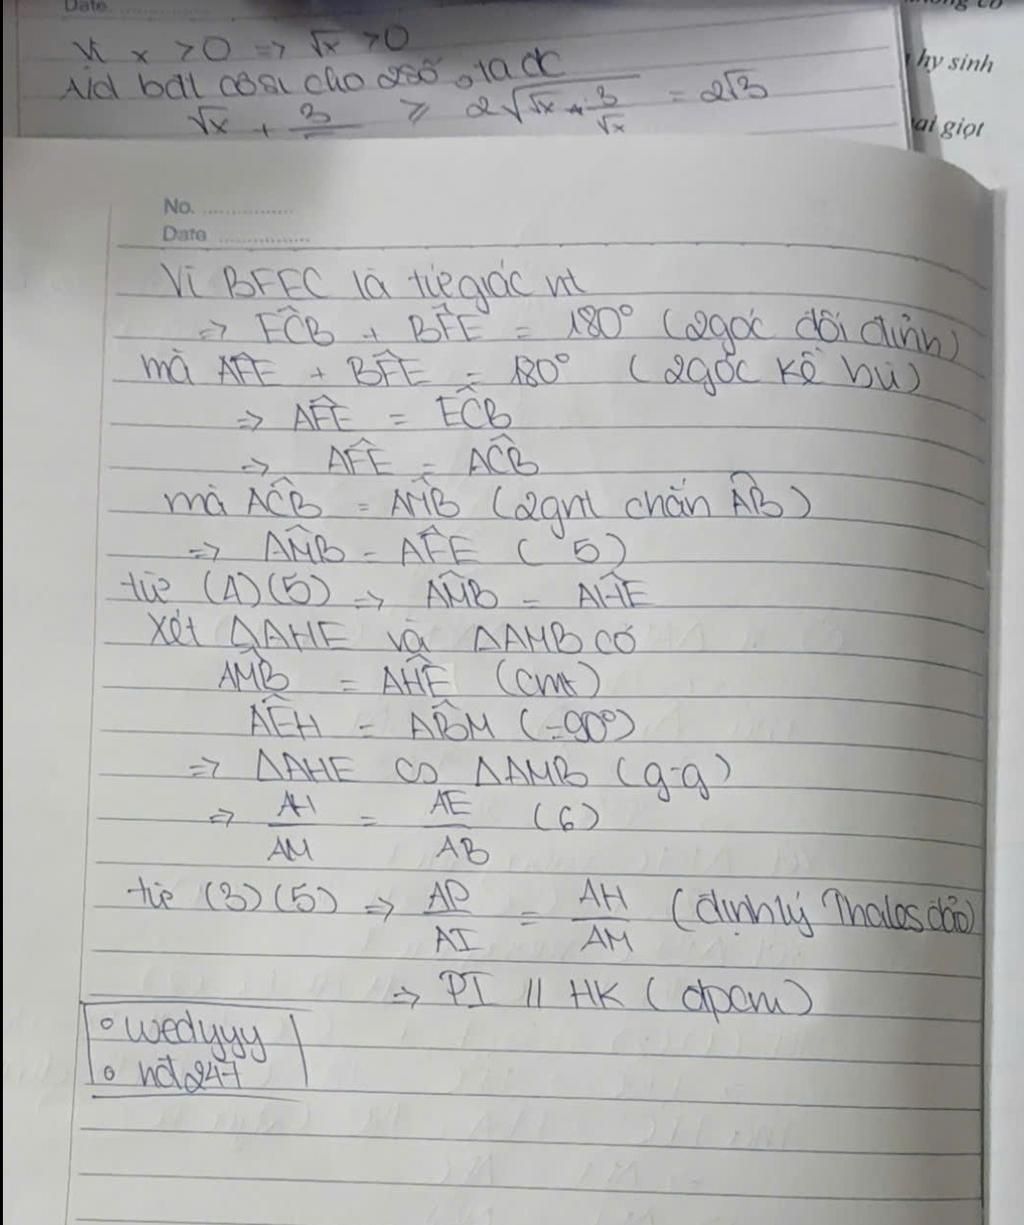 Date
Vì x > 0 => √x > 0
Ad bđt cosi cho 2 số, ta đc
√x + 3 ≥ 2√√x . 3/√x = 2√3
hy sinh
ai giọt
No.
Date
Vì BFEC là tứ giác nt
=> EĈB + BF̂E = 180° (2góc đối đỉnh)
mà AF̂E + BF̂E = 180° (2góc kề bù)
=> AF̂E = EĈB
=> AF̂E = AĈB
mà AĈB = AM̂B (2gnt chắn AB)
=> AM̂B = AF̂E (5)
từ (4)(5) => AM̂B = AĤE
Xét ΔAHE và ΔAMB có
AM̂B = AĤE (cmt)
AÊH = AB̂M (=90°)
=> ΔAHE ∽ ΔAMB (g-g)
=> AH/AM = AE/AB (6)
từ (3)(5) => AP/AI = AH/AM (định lý Thales đảo)
=> PI // HK (đpcm)
∘ wedyyy
∘ hđ247